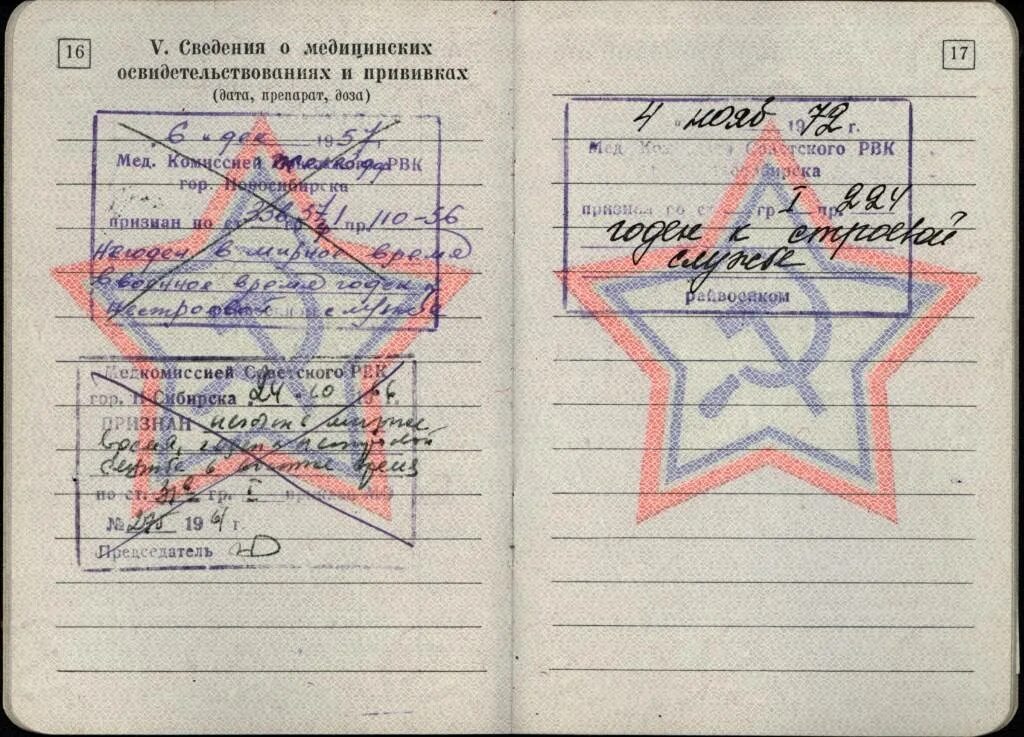 16
V. Сведения о медицинских
освидетельствованиях и прививках
(дата, препарат, доза)
6 " дек 1957
Мед. Комиссией РВК
гор. Новосибирска
признан по ст. гр. пр. 110-56
Негоден в мирное время
в военное время годен к
нестроевой службе
Медкомиссией Советского РВК
гор. Н-Сибирска 24 10 66
ПРИЗНАН негоден в мирное
время, годен к нестроевой
службе в военное время
по ст. гр. I приказ МО
№ 275 196 г.
Председатель
17
4 нояб 1972 г.
Мед Советского РВК
признан по ст гр I пр. 224
годен к строевой
службе
райвоенком